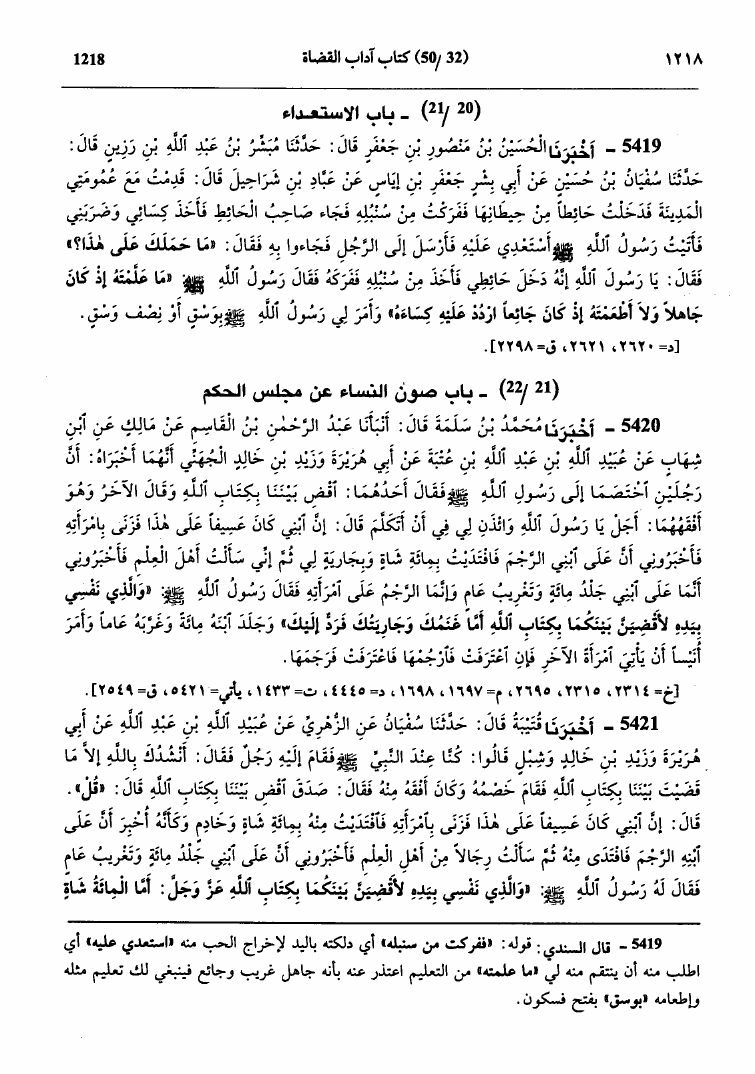 ١٢١٨ (50/32) كتاب آداب القضاة 1218
(21/20) - باب الاستعداء
5419 - أَخْبَرَنَا الْحُسَيْنُ بْنُ مَنْصُورِ بْنِ جَعْفَرٍ قَالَ: حَدَّثَنَا مُبَشِّرُ بْنُ عَبْدِ ٱللَّهِ بْنِ رَزِينٍ قَالَ:
حَدَّثَنَا سُفْيَانُ بْنُ حُسَيْنٍ عَنْ أَبِي بِشْرٍ جَعْفَرِ بْنِ إِيَاسٍ عَنْ عَبَّادِ بْنِ شَرَاحِيلَ قَالَ: قَدِمْتُ مَعَ عُمُومَتِي
الْمَدِينَةَ فَدَخَلْتُ حَائِطاً مِنْ حِيطَانِهَا فَفَرَكْتُ مِنْ سُنْبُلِهِ فَجَاءَ صَاحِبُ الْحَائِطِ فَأَخَذَ كِسَائِي وَضَرَبَنِي
فَأَتَيْتُ رَسُولَ ٱللَّهِ ﷺ أَسْتَعْدِي عَلَيْهِ فَأَرْسَلَ إِلَى الرَّجُلِ فَجَاءوا بِهِ فَقَالَ: «مَا حَمَلَكَ عَلَى هٰذَا؟»
فَقَالَ: يَا رَسُولَ ٱللَّهِ إِنَّهُ دَخَلَ حَائِطِي فَأَخَذَ مِنْ سُنْبُلِهِ فَفَرَكَهُ فَقَالَ رَسُولُ ٱللَّهِ ﷺ: «مَا عَلَّمْتَهُ إِذْ كَانَ
جَاهِلاً وَلاَ أَطْعَمْتَهُ إِذْ كَانَ جَائِعاً ارْدُدْ عَلَيْهِ كِسَاءَهُ» وَأَمَرَ لِي رَسُولُ ٱللَّهِ ﷺ بِوَسْقٍ أَوْ نِصْفِ وَسْقٍ.
[د= ٢٦٢٠، ٢٦٢١، ق= ٢٢٩٨].
(22/21) - باب صون النساء عن مجلس الحكم
5420 - أَخْبَرَنَا مُحَمَّدُ بْنُ سَلَمَةَ قَالَ: أَنْبَأَنَا عَبْدُ الرَّحْمٰنِ بْنُ الْقَاسِمِ عَنْ مَالِكٍ عَنِ ٱبْنِ
شِهَابٍ عَنْ عُبَيْدِ ٱللَّهِ بْنِ عَبْدِ ٱللَّهِ بْنِ عُتْبَةَ عَنْ أَبِي هُرَيْرَةَ وَزَيْدِ بْنِ خَالِدٍ الْجُهَنِّي أَنَّهُمَا أَخْبَرَاهُ: أَنَّ
رَجُلَيْنِ ٱخْتَصَمَا إِلَى رَسُولِ ٱللَّهِ ﷺ فَقَالَ أَحَدُهُمَا: ٱقْضِ بَيْنَنَا بِكِتَابِ ٱللَّهِ وَقَالَ الآخَرُ وَهُوَ
أَفْقَهُهُمَا: أَجَلْ يَا رَسُولَ ٱللَّهِ وَائْذَنْ لِي فِي أَنْ أَتَكَلَّمَ قَالَ: إِنَّ ٱبْنِي كَانَ عَسِيفاً عَلَى هٰذَا فَزَنَى بِٱمْرَأَتِهِ
فَأَخْبَرُونِي أَنَّ عَلَى ٱبْنِي الرَّجْمَ فَافْتَدَيْتُ بِمِائَةِ شَاةٍ وَبِجَارِيَةٍ لِي ثُمَّ إِنِّي سَأَلْتُ أَهْلَ الْعِلْمِ فَأَخْبَرُونِي
أَنَّمَا عَلَى ٱبْنِي جَلْدُ مِائَةٍ وَتَغْرِيبُ عَامٍ وَإِنَّمَا الرَّجْمُ عَلَى ٱمْرَأَتِهِ فَقَالَ رَسُولُ ٱللَّهِ ﷺ: «وَالَّذِي نَفْسِي
بِيَدِهِ لأَقْضِيَنَّ بَيْنَكُمَا بِكِتَابِ ٱللَّهِ أَمَّا غَنَمُكَ وَجَارِيَتُكَ فَرَدٌّ إِلَيْكَ» وَجَلَدَ ٱبْنَهُ مِائَةً وَغَرَّبَهُ عَاماً وَأَمَرَ
أُنَيْساً أَنْ يَأْتِيَ ٱمْرَأَةَ الآخَرِ فَإِنِ ٱعْتَرَفَتْ فَٱرْجُمْهَا فَاعْتَرَفَتْ فَرَجَمَهَا.
[خ= ٢٣١٤، ٢٣١٥، ٢٦٩٥، م= ١٦٩٧، ١٦٩٨، د= ٤٤٤٥، ت= ١٤٣٣، يأتي= ٥٤٢١، ق= ٢٥٤٩].
5421 - أَخْبَرَنَا قُتَيْبَةُ قَالَ: حَدَّثَنَا سُفْيَانُ عَنِ الزُّهْرِيِّ عَنْ عُبَيْدِ ٱللَّهِ بْنِ عَبْدِ ٱللَّهِ عَنْ أَبِي
هُرَيْرَةَ وَزَيْدِ بْنِ خَالِدٍ وَشِبْلٍ قَالُوا: كُنَّا عِنْدَ النَّبِيِّ ﷺ فَقَامَ إِلَيْهِ رَجُلٌ فَقَالَ: أَنْشُدُكَ بِاللَّهِ إِلاَّ مَا
قَضَيْتَ بَيْنَنَا بِكِتَابِ ٱللَّهِ فَقَامَ خَصْمُهُ وَكَانَ أَفْقَهَ مِنْهُ فَقَالَ: صَدَقَ ٱقْضِ بَيْنَنَا بِكِتَابِ ٱللَّهِ قَالَ: «قُلْ».
قَالَ: إِنَّ ٱبْنِي كَانَ عَسِيفاً عَلَى هٰذَا فَزَنَى بِٱمْرَأَتِهِ فَٱفْتَدَيْتُ مِنْهُ بِمِائَةِ شَاةٍ وَخَادِمٍ وَكَأَنَّهُ أُخْبِرَ أَنَّ عَلَى
ٱبْنِهِ الرَّجْمَ فَافْتَدَى مِنْهُ ثُمَّ سَأَلْتُ رِجَالاً مِنْ أَهْلِ الْعِلْمِ فَأَخْبَرُونِي أَنَّ عَلَى ٱبْنِي جَلْدُ مِائَةٍ وَتَغْرِيبُ عَامٍ
فَقَالَ لَهُ رَسُولُ ٱللَّهِ ﷺ: «وَالَّذِي نَفْسِي بِيَدِهِ لأَقْضِيَنَّ بَيْنَكُمَا بِكِتَابِ ٱللَّهِ عَزَّ وَجَلَّ: أَمَّا الْمِائَةُ شَاةٍ
5419 - قال السندي: قوله: «ففركت من سنبله» أي دلكته باليد لإخراج الحب منه «استعدي عليه» أي
اطلب منه أن ينتقم منه لي «ما علمته» من التعليم اعتذر عنه بأنه جاهل غريب وجائع فينبغي لك تعليم مثله
وإطعامه «بوسق» بفتح فسكون.